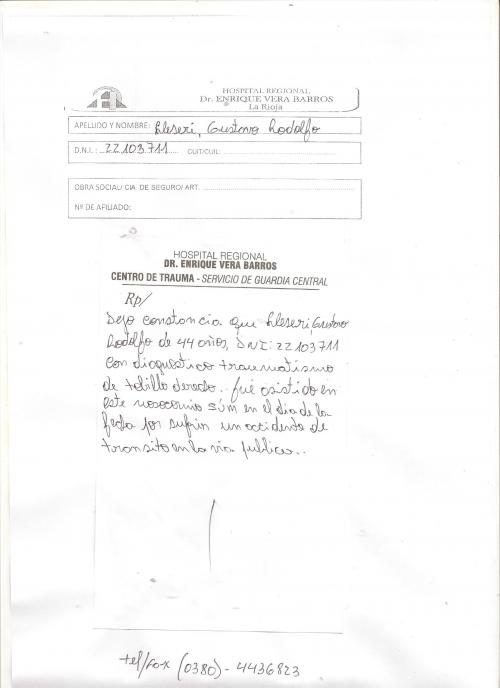 HOSPITAL REGIONAL
Dr. ENRIQUE VERA BARROS
La Rioja
APELLIDO Y NOMBRE: Eleseri, Gustavo Rodolfo
D.N.I.: 22103711 CUIT/CUIL:
OBRA SOCIAL/ CIA. DE SEGURO/ ART.
Nº DE AFILIADO:
HOSPITAL REGIONAL
DR. ENRIQUE VERA BARROS
CENTRO DE TRAUMA - SERVICIO DE GUARDIA CENTRAL
Rp/
Dejo constancia que Eleseri Gustavo
Rodolfo de 44 años, DNI: 22103711
con diagnostico traumatismo
de tobillo derecho.. fué asistido en
este nosocomio en el dia de la
fecha por sufrir un accidente de
transito en la via publica..
tel/fax (0380) - 4436823